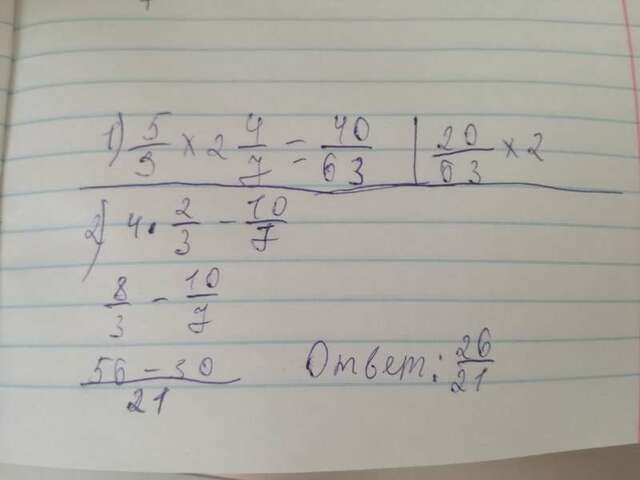 1) 5/9 × 2 4/7 = 40/63 | 20/63 × 2
2) 4 · 2/3 - 10/7
8/3 - 10/7
56 - 30/21
Ответ: 26/21